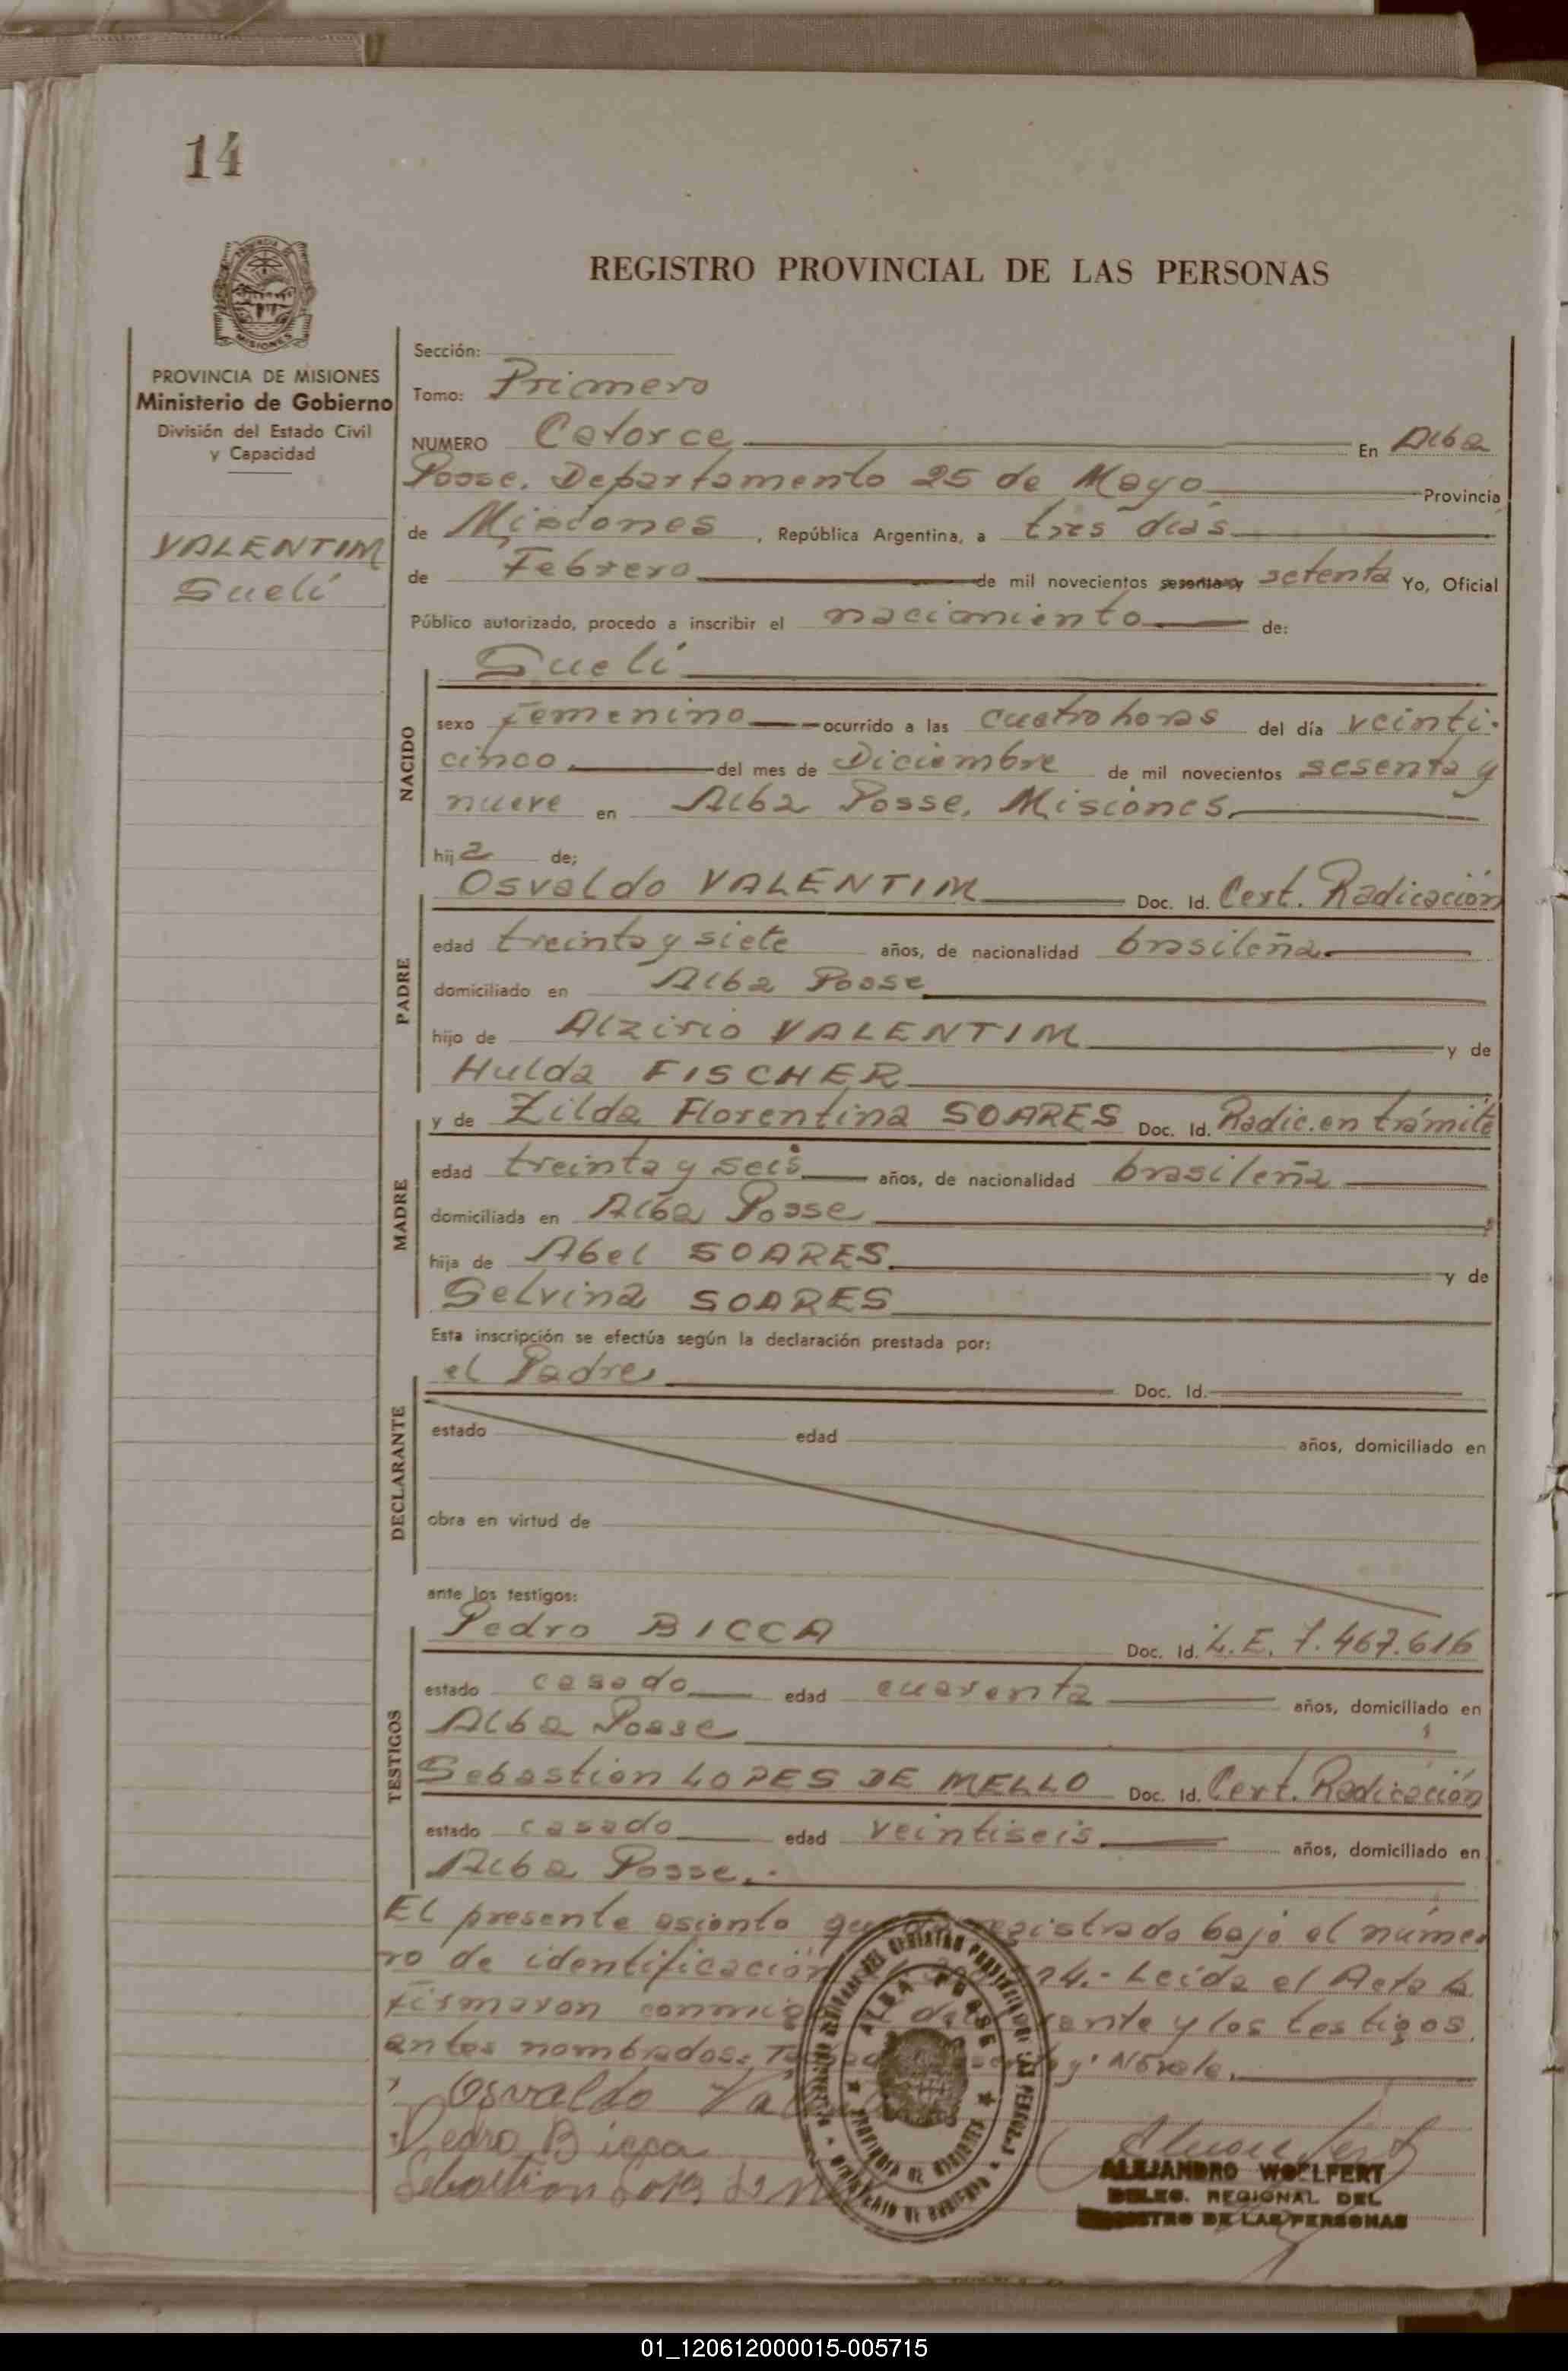 14
REGISTRO PROVINCIAL DE LAS PERSONAS
PROVINCIA DE MISIONES
Ministerio de Gobierno
División del Estado Civil
y Capacidad
VALENTIM
Suelí
Sección:
Tomo: Primero
NUMERO Catorce En Alba
Posse, Departamento 25 de Mayo Provincia
de Misiones, República Argentina, a tres días
de Febrero de mil novecientos sesenta y setenta Yo, Oficial
Público autorizado, procedo a inscribir el nacimiento de:
Suelí
NACIDO
sexo femenino ocurrido a las cuatro horas del día veinti-
cinco del mes de Diciembre de mil novecientos sesenta y
nueve en Alba Posse, Misiones.
hija de;
PADRE
Osvaldo VALENTIM Doc. Id. Cert. Radicación
edad treinta y siete años, de nacionalidad brasileña
domiciliado en Alba Posse
hijo de Alzirio VALENTIM y de
Hulda FISCHER
MADRE
y de Zilda Florentina SOARES Doc. Id. Radic. en trámite
edad treinta y seis años, de nacionalidad brasileña
domiciliada en Alba Posse
hija de Abel SOARES y de
Selvina SOARES
Esta inscripción se efectúa según la declaración prestada por:
DECLARANTE
el Padre Doc. Id.
estado edad años, domiciliado en
obra en virtud de
ante los testigos:
TESTIGOS
Pedro BICCA Doc. Id. L.E. 7.467.616
estado casado edad cuarenta años, domiciliado en
Alba Posse
Sebastian LOPES DE MELLO Doc. Id. Cert. Radicación
estado casado edad veintiseis años, domiciliado en
Alba Posse.
El presente asiento registrado bajo el núme-
ro de identificación 24.- Leída el Acta la
firmaron y los testigos
antes nombrados: y: No vale.
Osvaldo
Pedro Bicca
Sebastian
ALBA POSSE
PROVINCIA DE MISIONES
ALEJANDRO WOELFERT
DELEG. REGIONAL DEL
REGISTRO DE LAS PERSONAS
01_120612000015-005715